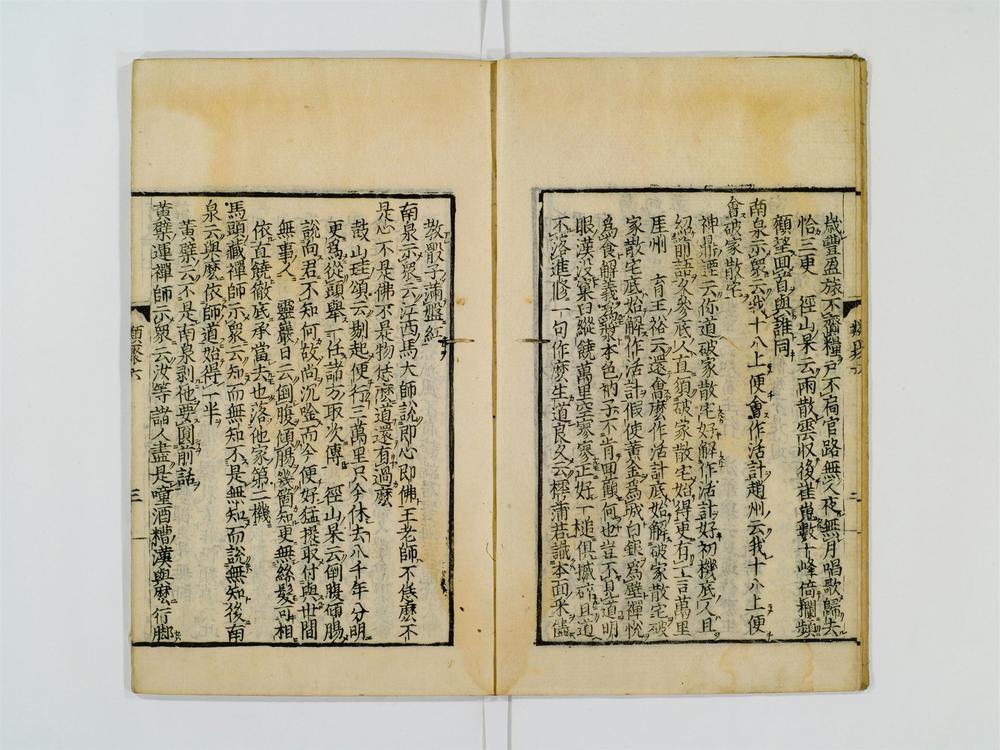 歳豐盈旅不齎糧戸不扃官路無人夜無月唱歌歸去
恰三更　徑山杲云雨散雲收後崔嵬數十峰倚欄頻
顧望回首與誰同
南泉示衆云我十八上便會作活計趙州云我十八上便
會破家散宅
神鼎諲云你道破家散宅好解作活計好初機底人且
紹前話久參底人直須破家散宅始得更有一言萬里
厓州　育王裕云還會麼作活計底始解破家散宅破
家散宅底始解作活計假使黄金爲城白銀爲壁禪悅
爲食解義爲漿本色衲子不肯回顧何也豈不見道明
眼漢没窠臼縱饒萬里空寥寥正好一槌俱撼碎且道
不落進修一句作麼生道良久云樗蒲若識本面采儘
類聚六
教骰子滿盤紅
南泉示衆云江西馬大師說即心即佛王老師不恁麼不
是心不是佛不是物恁麼道還有過麼
鼓山珪頌云剔起便行三萬里只今休去八千年分明
更爲從頭舉一任諸方取次傳　徑山杲云倒腹傾腸
說向君不知何故尚沉吟而今便好猛提取付與世間
無事人　靈巖日云倒腹傾腸幾箇知更無絲髮可相
依直饒徹底承當去也落他家第二機
馬頭藏禪師示衆云知而無知不是無知而說無知後南
泉云與麼依師道始得一半
黄檗云不是南泉剥他要圓前話
黄檗運禪師示衆云汝等諸人盡是噇酒糟漢與麼行脚
類聚六
三